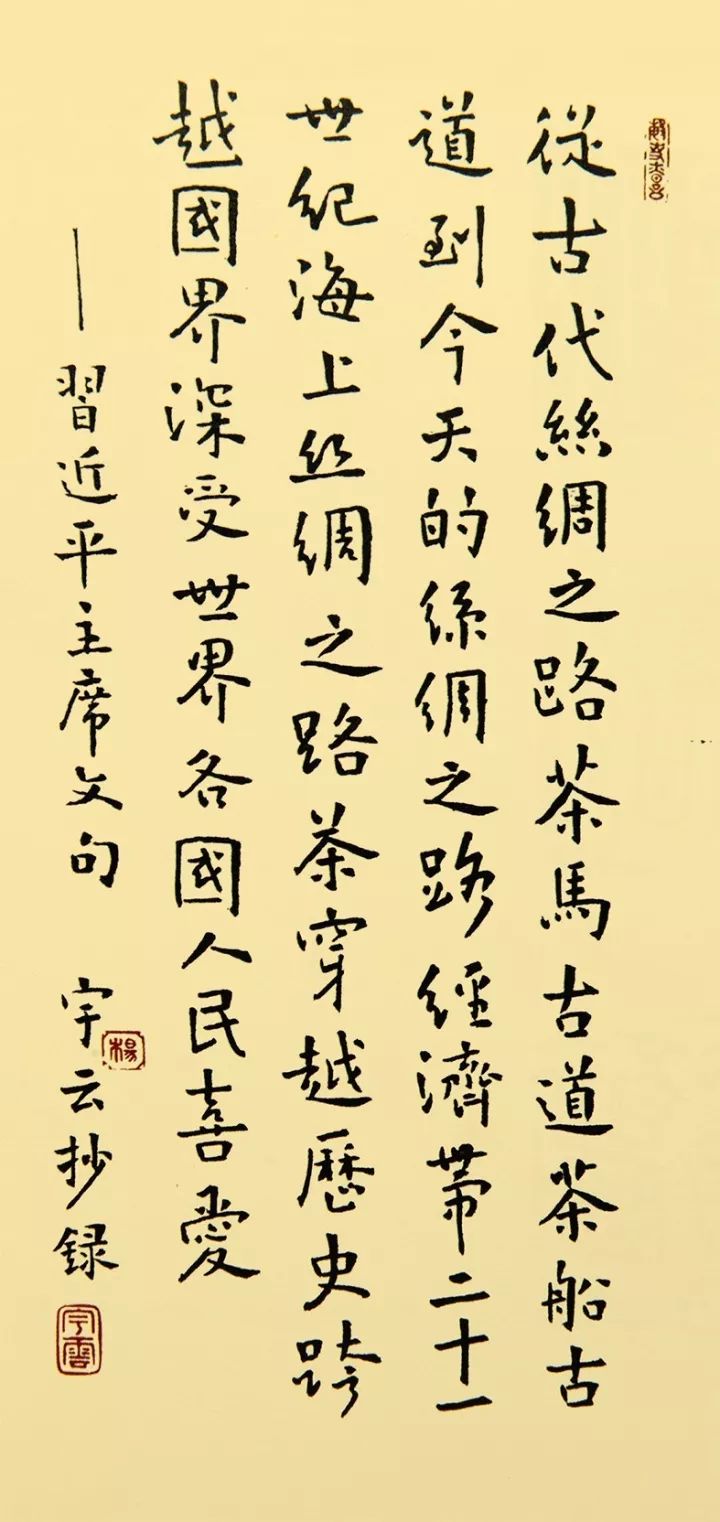 從古代絲綢之路茶馬古道茶船古
道到今天的絲綢之路經濟帶二十一
世紀海上丝綢之路茶穿越歷史跨
越國界深受世界各國人民喜愛
——習近平主席文句 宇云抄録
楊
宇雲